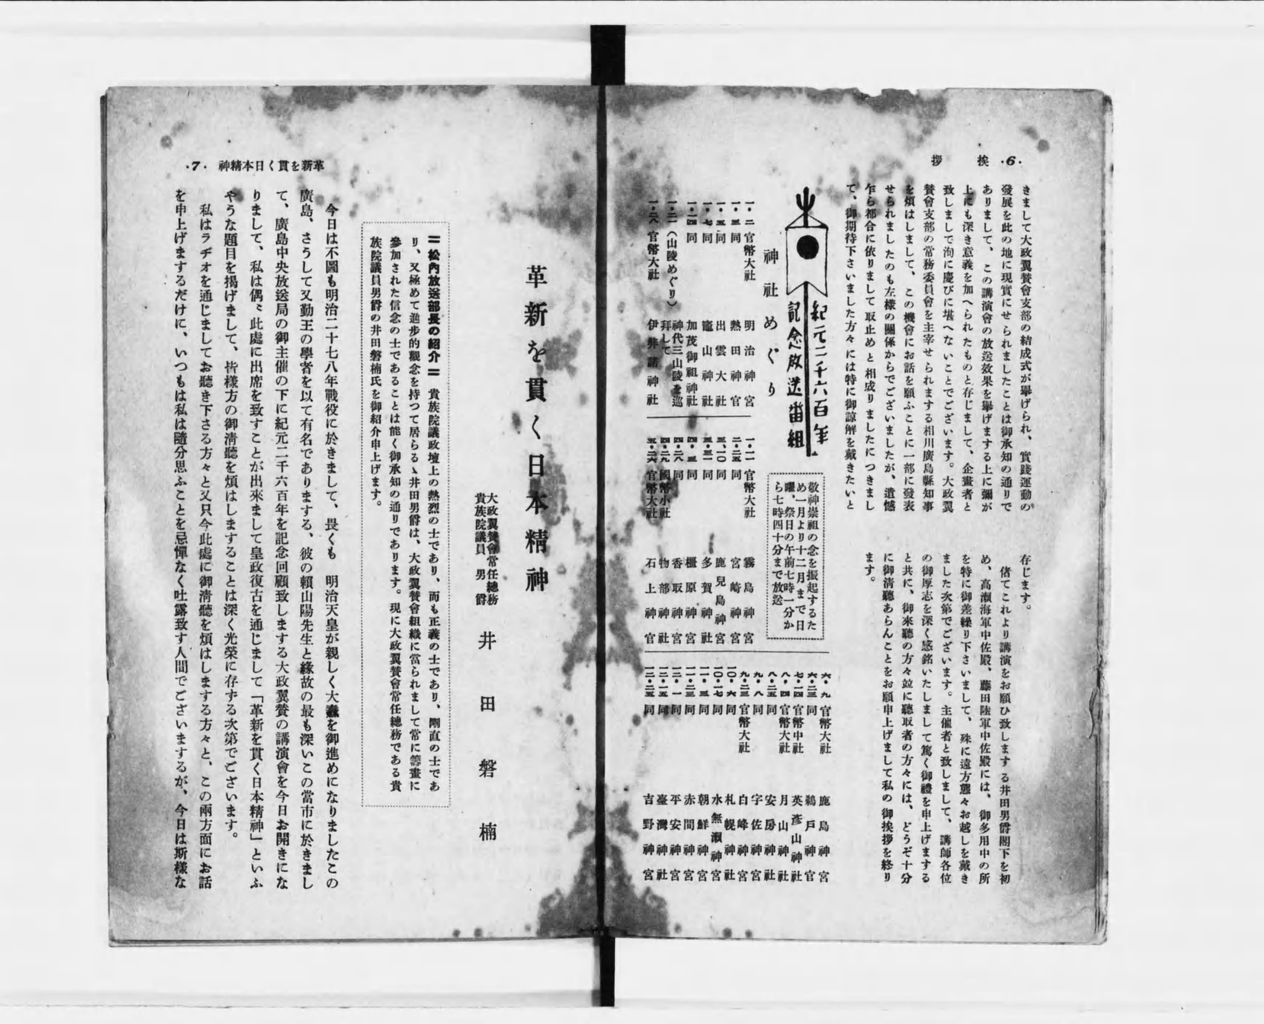 挨拶 ・6・
きまして大政翼賛會支部の結成式が擧げられ、實踐運動の
發展を此の地に現實にせられましたことは御承知の通りで
ありまして、この講演會の放送效果を擧げまする上に彌が
上にも深き意義を加へられたものと存じまして、企畫者と
致しまして洵に慶びに堪へないことでございます。大政翼
賛會支部の常務委員會を主宰せられまする相川廣島縣知事
を煩はしまして、この機會にお話を願ふことに一部に發表
せられましたのも左樣の關係からでございましたが、遺憾
乍ら都合に依りまして取止めと相成りましたにつきまし
て、御期待下さいました方々には特に御諒解を戴きたいと
存じます。
偖てこれより講演をお願ひ致しまする井田男爵閣下を初
め、高瀨海軍中佐殿、藤田陸軍中佐殿には、御多用中の所
を特に御差繰り下さいまして、殊に遠方態々お越しを戴き
ました次第でございます。主催者と致しまして、講師各位
の御厚志を深く感銘いたしまして篤く御禮を申上げまする
と共に、御來聽の方々竝に聽取者の方々には、どうぞ十分
に御清聽あらんことをお願申上げまして私の御挨拶を終り
ます。
紀元二千六百年
記念放送番組
神社めぐり
敬神崇祖の念を振起するた
め一月より十二月まで日
曜、祭日の午前七時一分か
ら七時四十分まで放送
官幣大社 明治神宮
同 熱田神宮
同 出雲大社
同 竈山神社
同 加茂御祖神社
(山陵めぐり) 神代三山陵を巡
拜して
官幣大社 伊弉諾神社
官幣大社 霧島神宮
同 宮崎神宮
同 鹿兒島神宮
同 多賀神社
同 橿原神宮
同 香取神宮
國幣小社 物部神社
官幣大社 石上神宮
官幣大社 鹿島神宮
同 鵜戸神宮
官幣中社 英彦山神社
官幣大社 月山神社
同 安房神社
同 宇佐神宮
官幣大社 白峰神宮
同 札幌神社
同 水無瀨神宮
同 朝鮮神宮
同 赤間神宮
同 平安神宮
同 臺灣神社
同 吉野神宮
革新を貫く日本精神 ・7・
革新を貫く日本精神
大政翼賛會常任總務
貴族院議員 男爵
井田磐楠
=松内放送部長の紹介= 貴族院議政壇上の熱烈の士であり、而も正義の士であり、剛直の士であ
り、又極めて進歩的觀念を持つて居らるゝ井田男爵は、大政翼賛會組織に當られまして常に籌畫に
參加された信念の士であることは能く御承知の通りであります。現に大政翼賛會常任總務である貴
族院議員男爵の井田磐楠氏を御紹介申上げます。
今日は不圖も明治二十七八年戰役に於きまして、畏くも 明治天皇が親しく大纛を御進めになりましたこの
廣島、さうして又勤王の學者を以て有名であります、彼の賴山陽先生と緣故の最も深いこの當市に於きまし
て、廣島中央放送局の御主催の下に紀元二千六百年を記念回顧致しまする大政翼賛の講演會を今日お開きにな
りまして、私は偶〻此處に出席を致すことが出來まして皇政復古を通じまして「革新を貫く日本精神」といふ
やうな題目を揭げまして、皆樣方の御清聽を煩はしますることは深く光榮に存ずる次第でございます。
私はラヂオを通じましてお聽き下さる方々と又只今此處に御清聽を煩はしまする方々と、この兩方面にお話
を申上げまするだけに、いつもは私は隨分思ふことを忌憚なく吐露致す人間でございまするが、今日は斯樣な